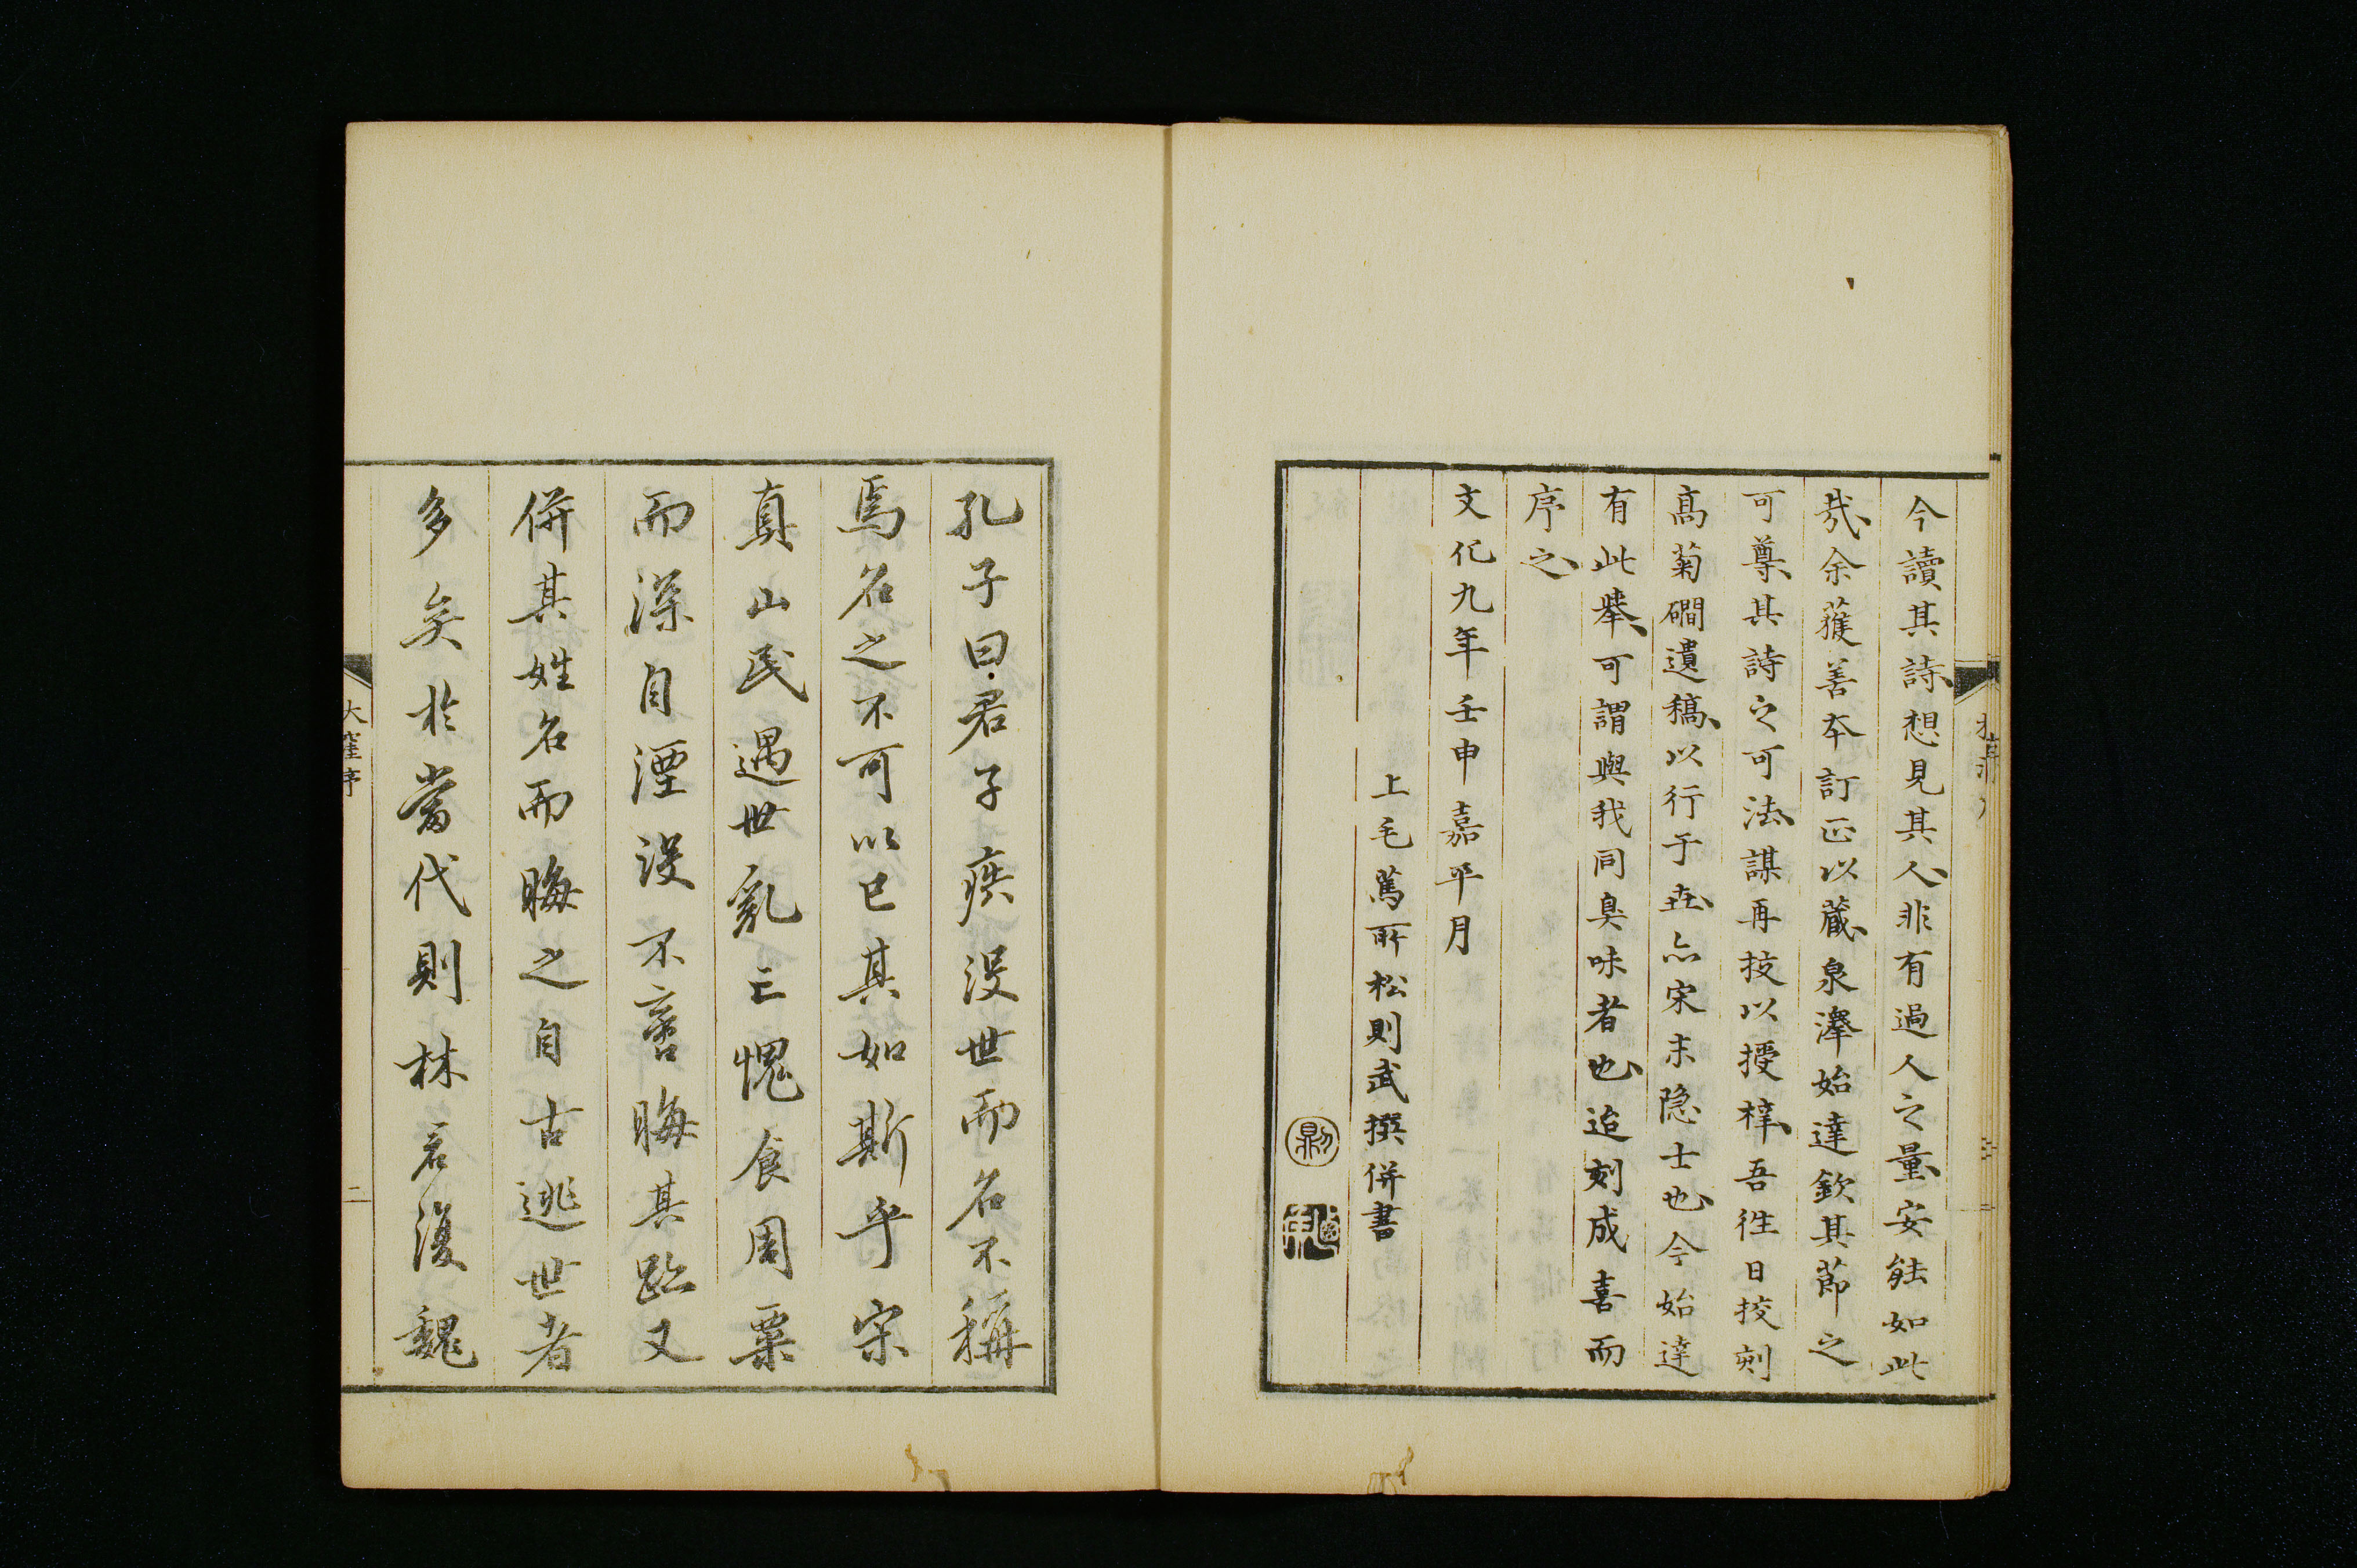 今讀其詩想見其人非有過人之量安能如此
哉余獲善本訂正以藏泉澤始達欽其節之
可尊其詩之可法謀再挍以授梓吾徃日挍刻
髙菊磵遺稿以行于世亦宋末隐士也今始達
有此舉可謂與我同臭味者也迨刻成喜而
序之
文化九年壬申嘉平月
上毛蔦所松則武撰併書
孔子曰君子疾没世而名不稱
焉名之不可以已其如斯乎宋
真山民遇世亂亡愧食周粟
而深自湮没不啻晦其跡又
併其姓名而晦之自古逃世者
多矣於當代則林君復魏
大窪序
二